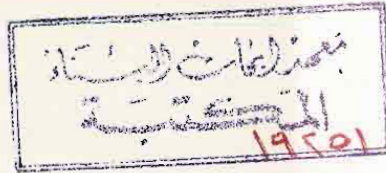 معهد ابحاث البناء
المكتبة
١٩٢٥١